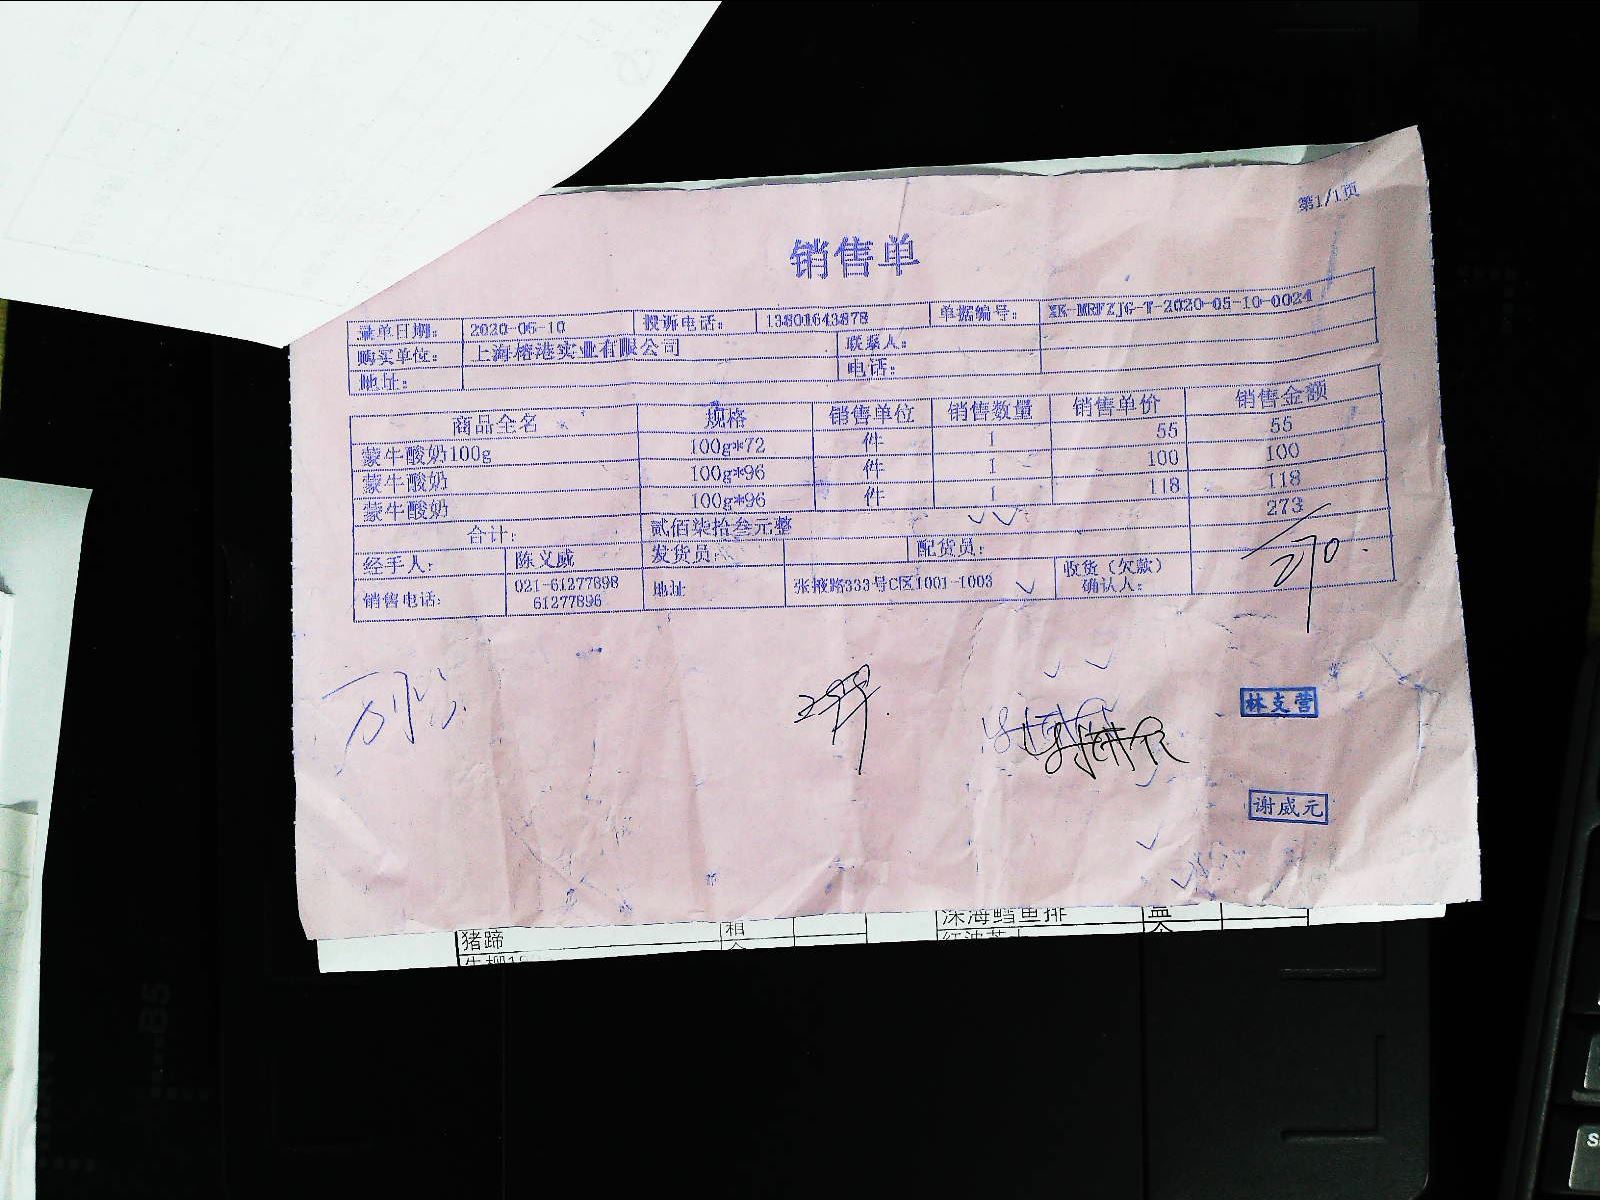 第1/1页
销售单
录单日期： 2020-05-10 投诉电话： 13801643878 单据编号： XK-MRFZJG-T-2020-05-10-0024
购买单位： 上海榕港实业有限公司 联系人：
地址： 电话：
商品全名 规格 销售单位 销售数量 销售单价 销售金额
蒙牛酸奶100g 100g*72 件 1 55 55
蒙牛酸奶 100g*96 件 1 100 100
蒙牛酸奶 100g*96 件 1 118 118
合计： 贰佰柒拾叁元整 273
经手人： 陈文威 发货员： 配货员：
销售电话： 021-61277898 61277896 地址 张掖路333号C区1001-1003 收货（欠款）确认人：
270.
林支营
谢威元
猪蹄 箱 深海鳕鱼排 盒